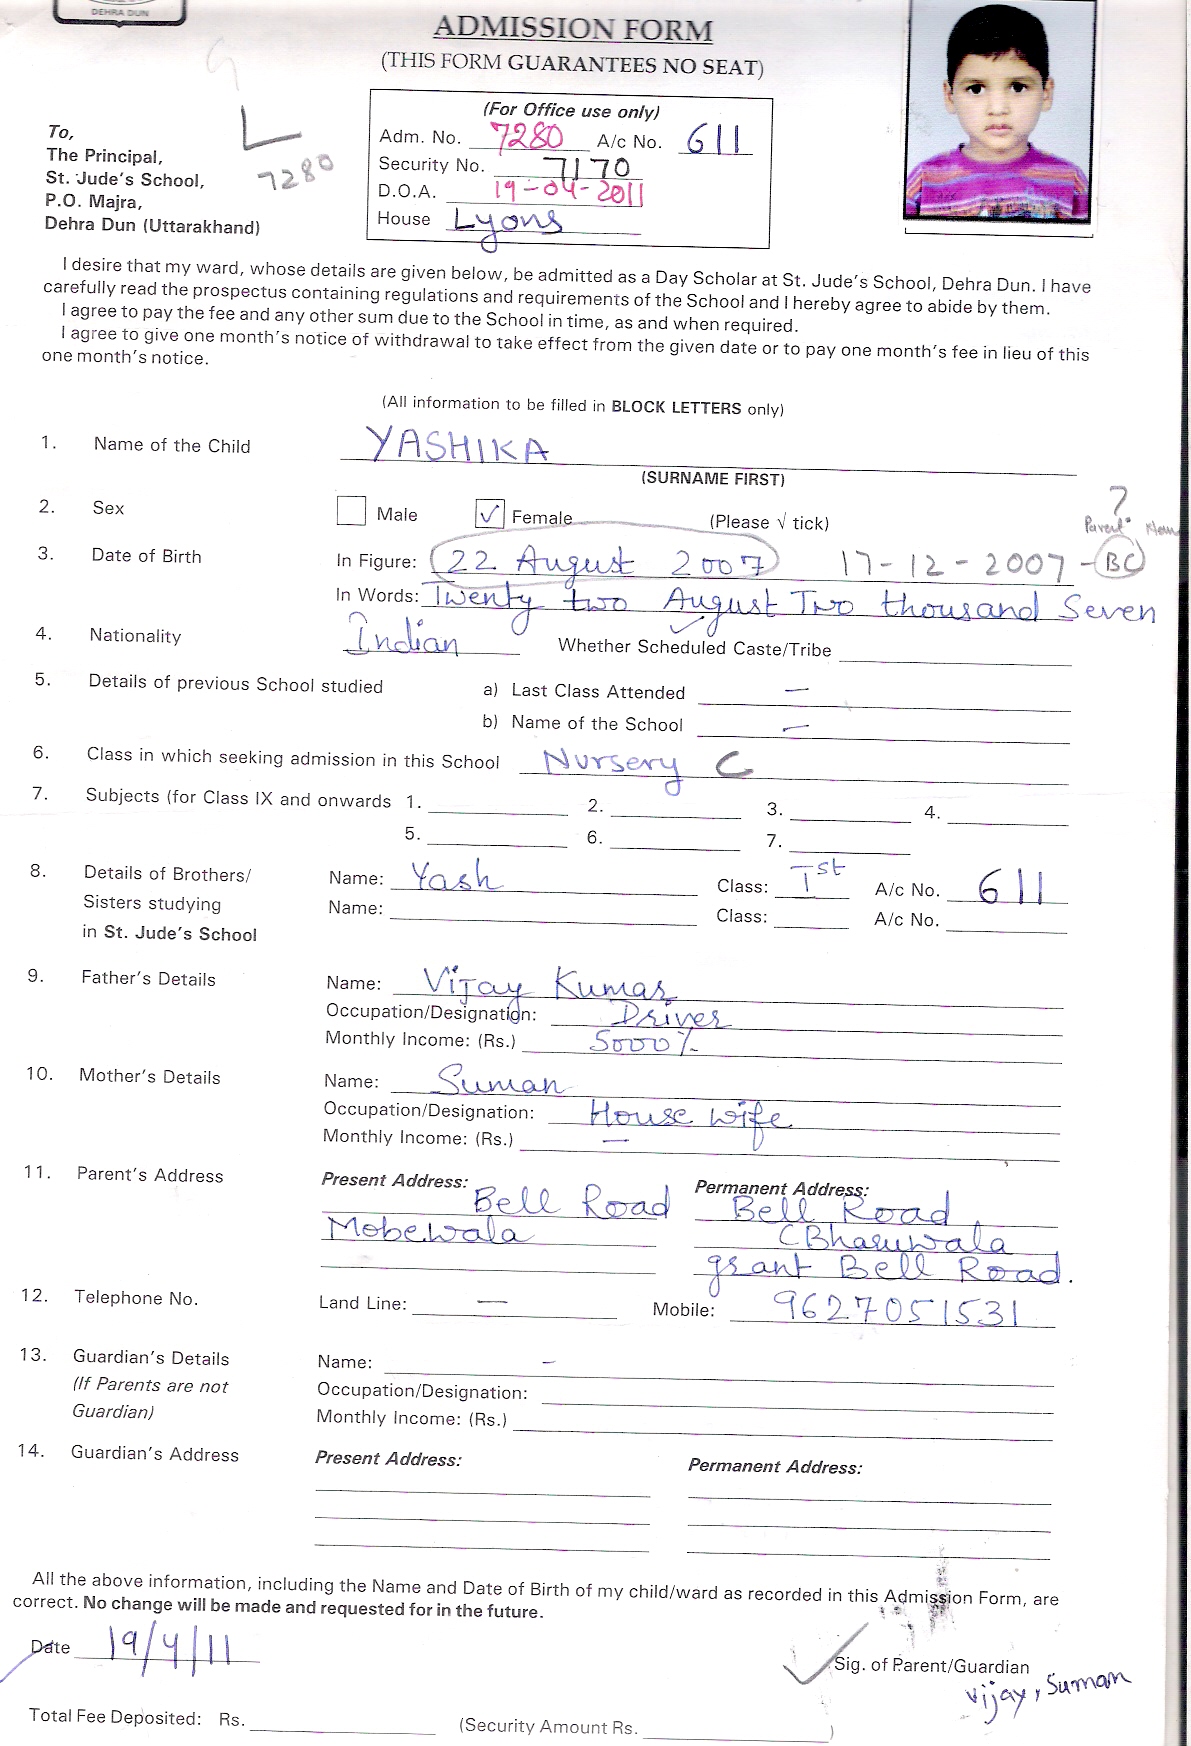 DEHRA DUN
ADMISSION FORM
(THIS FORM GUARANTEES NO SEAT)
(For Office use only)
Adm. No. 7280 A/c No. 611
Security No. 7170
D.O.A. 19-04-2011
House Lyons
To,
The Principal,
St. Jude's School,
P.O. Majra,
Dehra Dun (Uttarakhand)
7280
I desire that my ward, whose details are given below, be admitted as a Day Scholar at St. Jude's School, Dehra Dun. I have
carefully read the prospectus containing regulations and requirements of the School and I hereby agree to abide by them.
I agree to pay the fee and any other sum due to the School in time, as and when required.
I agree to give one month's notice of withdrawal to take effect from the given date or to pay one month's fee in lieu of this
one month's notice.
(All information to be filled in BLOCK LETTERS only)
1. Name of the Child YASHIKA
(SURNAME FIRST)
2. Sex Male ✓ Female (Please √ tick)
?
3. Date of Birth In Figure: 22 August 2007 17-12-2007 - BC
In Words: Twenty two August Two thousand Seven
4. Nationality Indian Whether Scheduled Caste/Tribe
5. Details of previous School studied a) Last Class Attended —
b) Name of the School —
6. Class in which seeking admission in this School Nursery C
7. Subjects (for Class IX and onwards 1. 2. 3. 4.
5. 6. 7.
8. Details of Brothers/ Name: Yash Class: Ist A/c No. 611
Sisters studying Name: Class: A/c No.
in St. Jude's School
9. Father's Details Name: Vijay Kumar
Occupation/Designation: Driver
Monthly Income: (Rs.) 5000/-
10. Mother's Details Name: Suman
Occupation/Designation: House wife
Monthly Income: (Rs.) —
11. Parent's Address Present Address: Permanent Address:
Bell Road Bell Road
Mobewala CBharuwala
grant Bell Road.
12. Telephone No. Land Line: — Mobile: 9627051531
13. Guardian's Details Name: –
(If Parents are not Occupation/Designation:
Guardian) Monthly Income: (Rs.)
14. Guardian's Address Present Address: Permanent Address:
All the above information, including the Name and Date of Birth of my child/ward as recorded in this Admission Form, are
correct. No change will be made and requested for in the future.
Date 19/4/11
Sig. of Parent/Guardian
Vijay, Suman
Total Fee Deposited: Rs. (Security Amount Rs. )